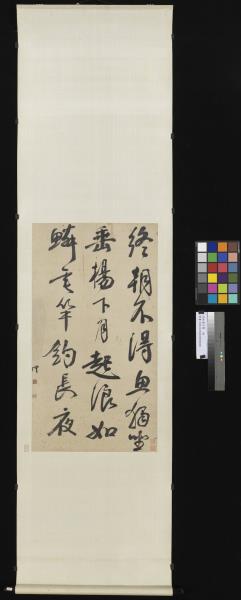 終朝不得魚猶坐
垂楊下月起浪如
鱗垂竿釣長夜